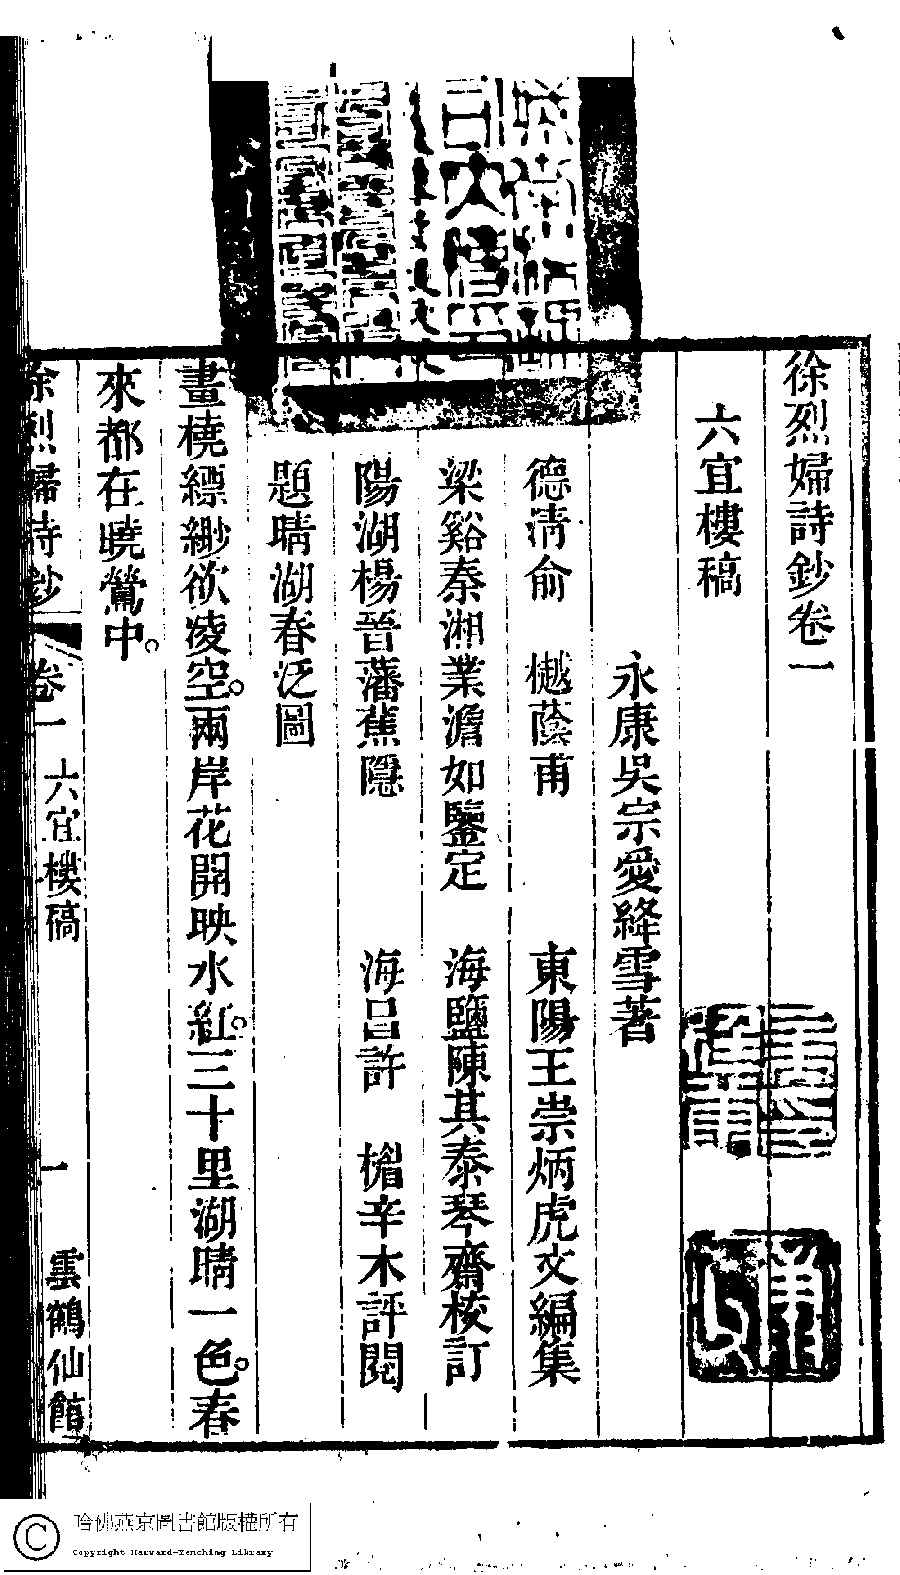 徐烈婦詩鈔卷一
六宜樓稿
永康吳宗愛絳雪著
德淸俞　樾蔭甫　東陽王崇炳虎文編集
梁谿秦湘業澹如鑒定　海鹽陳其泰琴齋校訂
陽湖楊晉藩蕉隱　海昌許　楣辛木評閱
題晴湖春泛圖
畫橈縹緲欲凌空。兩岸花開映水紅。三十里湖晴一色。春
來都在曉鶯中。
徐烈婦詩鈔　卷一　六宜樓稿　一　雲鶴仙館
哈佛燕京圖書館版權所有
Copyright Harvard-Yenching Library